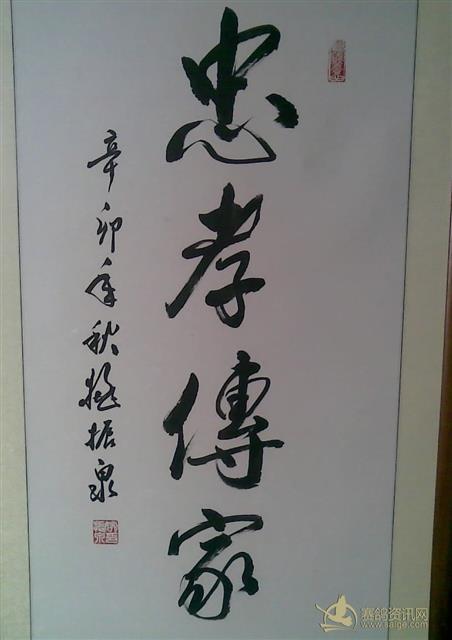 忠孝傳家
辛卯年秋 振泉
赛鸽资讯网
www.saige.com